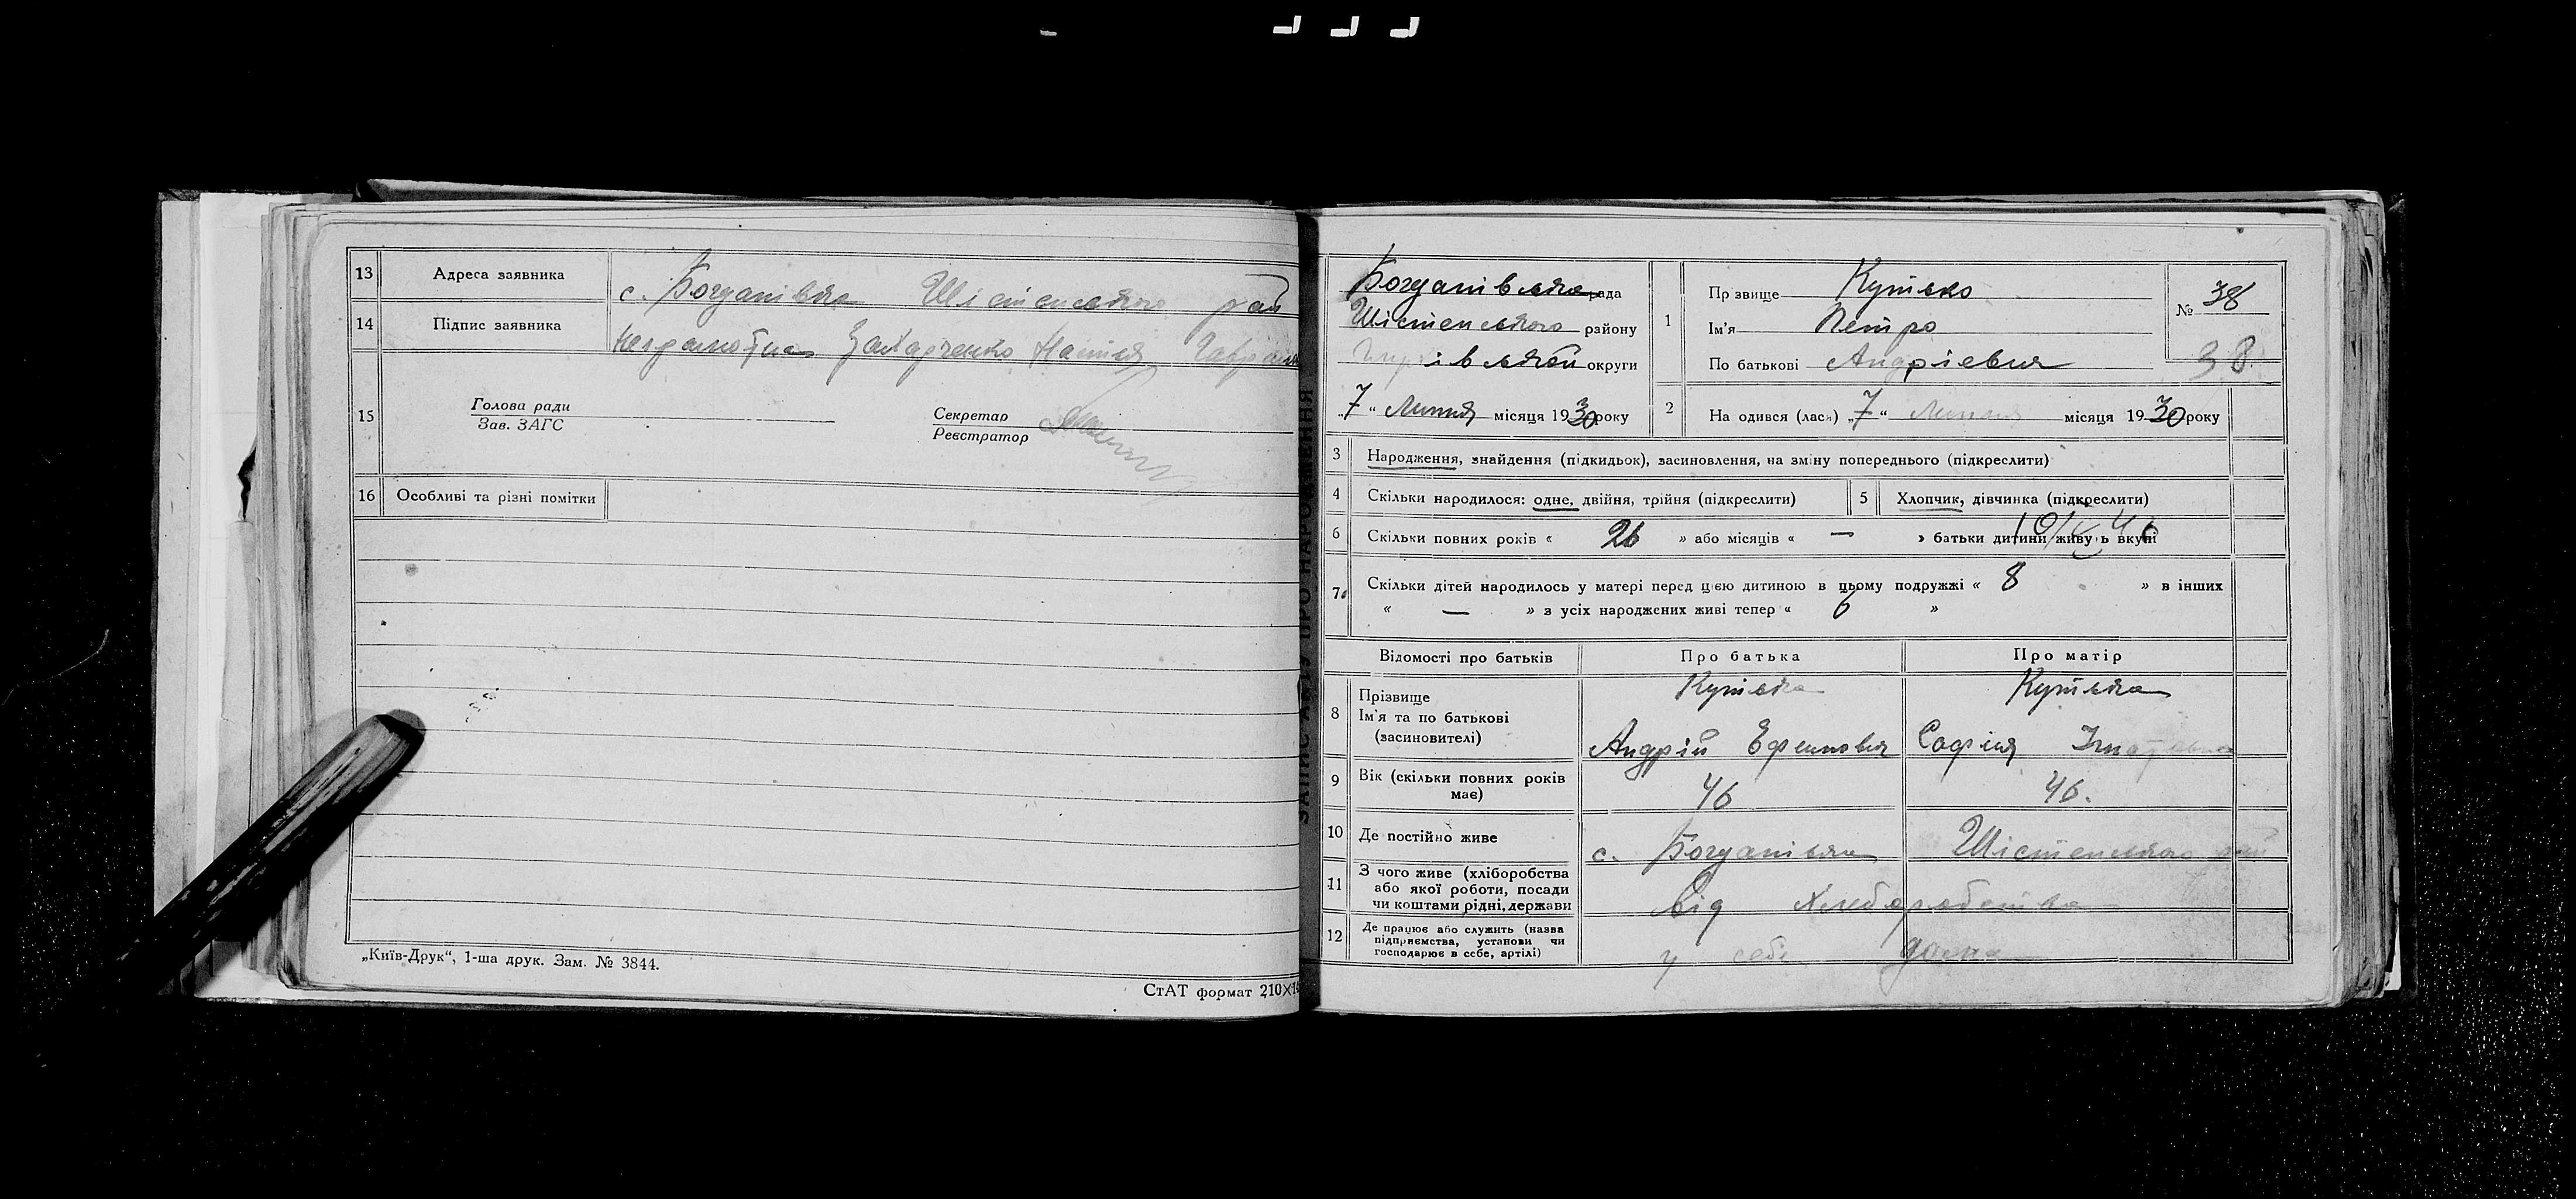 13 Адреса заявника с. Богданівка Шістенського рай
14 Підпис заявника неграмотна Захарченко
15 Голова ради
Зав. ЗАГС
Секретар
Реєстратор
16 Особливі та різні помітки
„Київ-Друк“, 1-ша друк. Зам. № 3844.
СтАТ формат 210×1
ЗАПИС АКТУ ПРО НАРОДЖЕННЯ
Богданівська рада
Шістенського району
округи
„7“ Липня місяця 1930 року
1 Пр звище Кутько
Ім'я Петро
По батькові Андрієвич
№ 38
38
2 На одився (лася) „7“ Липня місяця 1930 року
3 Народження, знайдення (підкидьок), засиновлення, на зміну попереднього (підкреслити)
4 Скільки народилося: одне, двійня, трійня (підкреслити)
5 Хлопчик, дівчинка (підкреслити)
6 Скільки повних років « 26 » або місяців « — » батьки дитини живу ь вкупі
7 Скільки дітей народилось у матері перед цією дитиною в цьому подружжі « 8 » в інших
« — » з усіх народжених живі тепер « 6 »
Відомості про батьків Про батька Про матір
8 Прізвище
Ім'я та по батькові
(засиновителі)
Кутька Кутька
Андрій Ефимович Софія
9 Вік (скільки повних років
має)
46 46.
10 Де постійно живе с. Богданівка Шістенського рай
11 З чого живе (хліборобства
або якої роботи, посади
чи коштами рідні, держави
від хлеборобства
12 Де працює або служить (назва
підприємства, установи чи
господарює в себе, артілі)
у себе дома